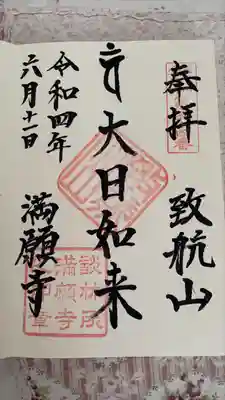 奉拝
致航山
大日如来
令和四年
六月十一日
満願寺
談林所
満願寺
之印章